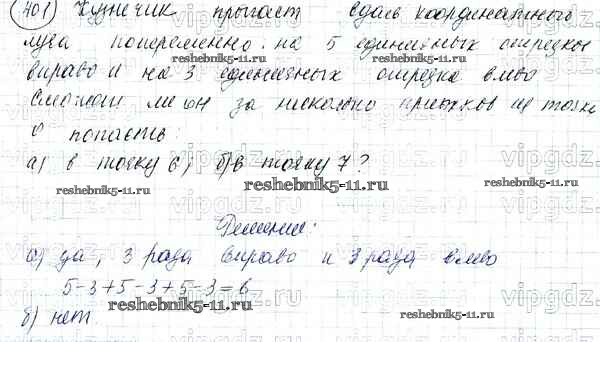 401 Кузнечик прыгает вдоль координатного
луча попеременно: на 5 единичных отрезков
вправо и на 3 единичных отрезка влево
Сможет ли он за несколько прыжков из точки
0 попасть:
а) в точку 6; б) в точку 7?
reshebnik5-11.ru
reshebnik5-11.ru
vipgdz.
Решение:
а) да, 3 раза вправо и 3 раза влево
5-3+5-3+5-3=6
reshebnik5-11.ru
reshebnik5-11.ru
б) нет.